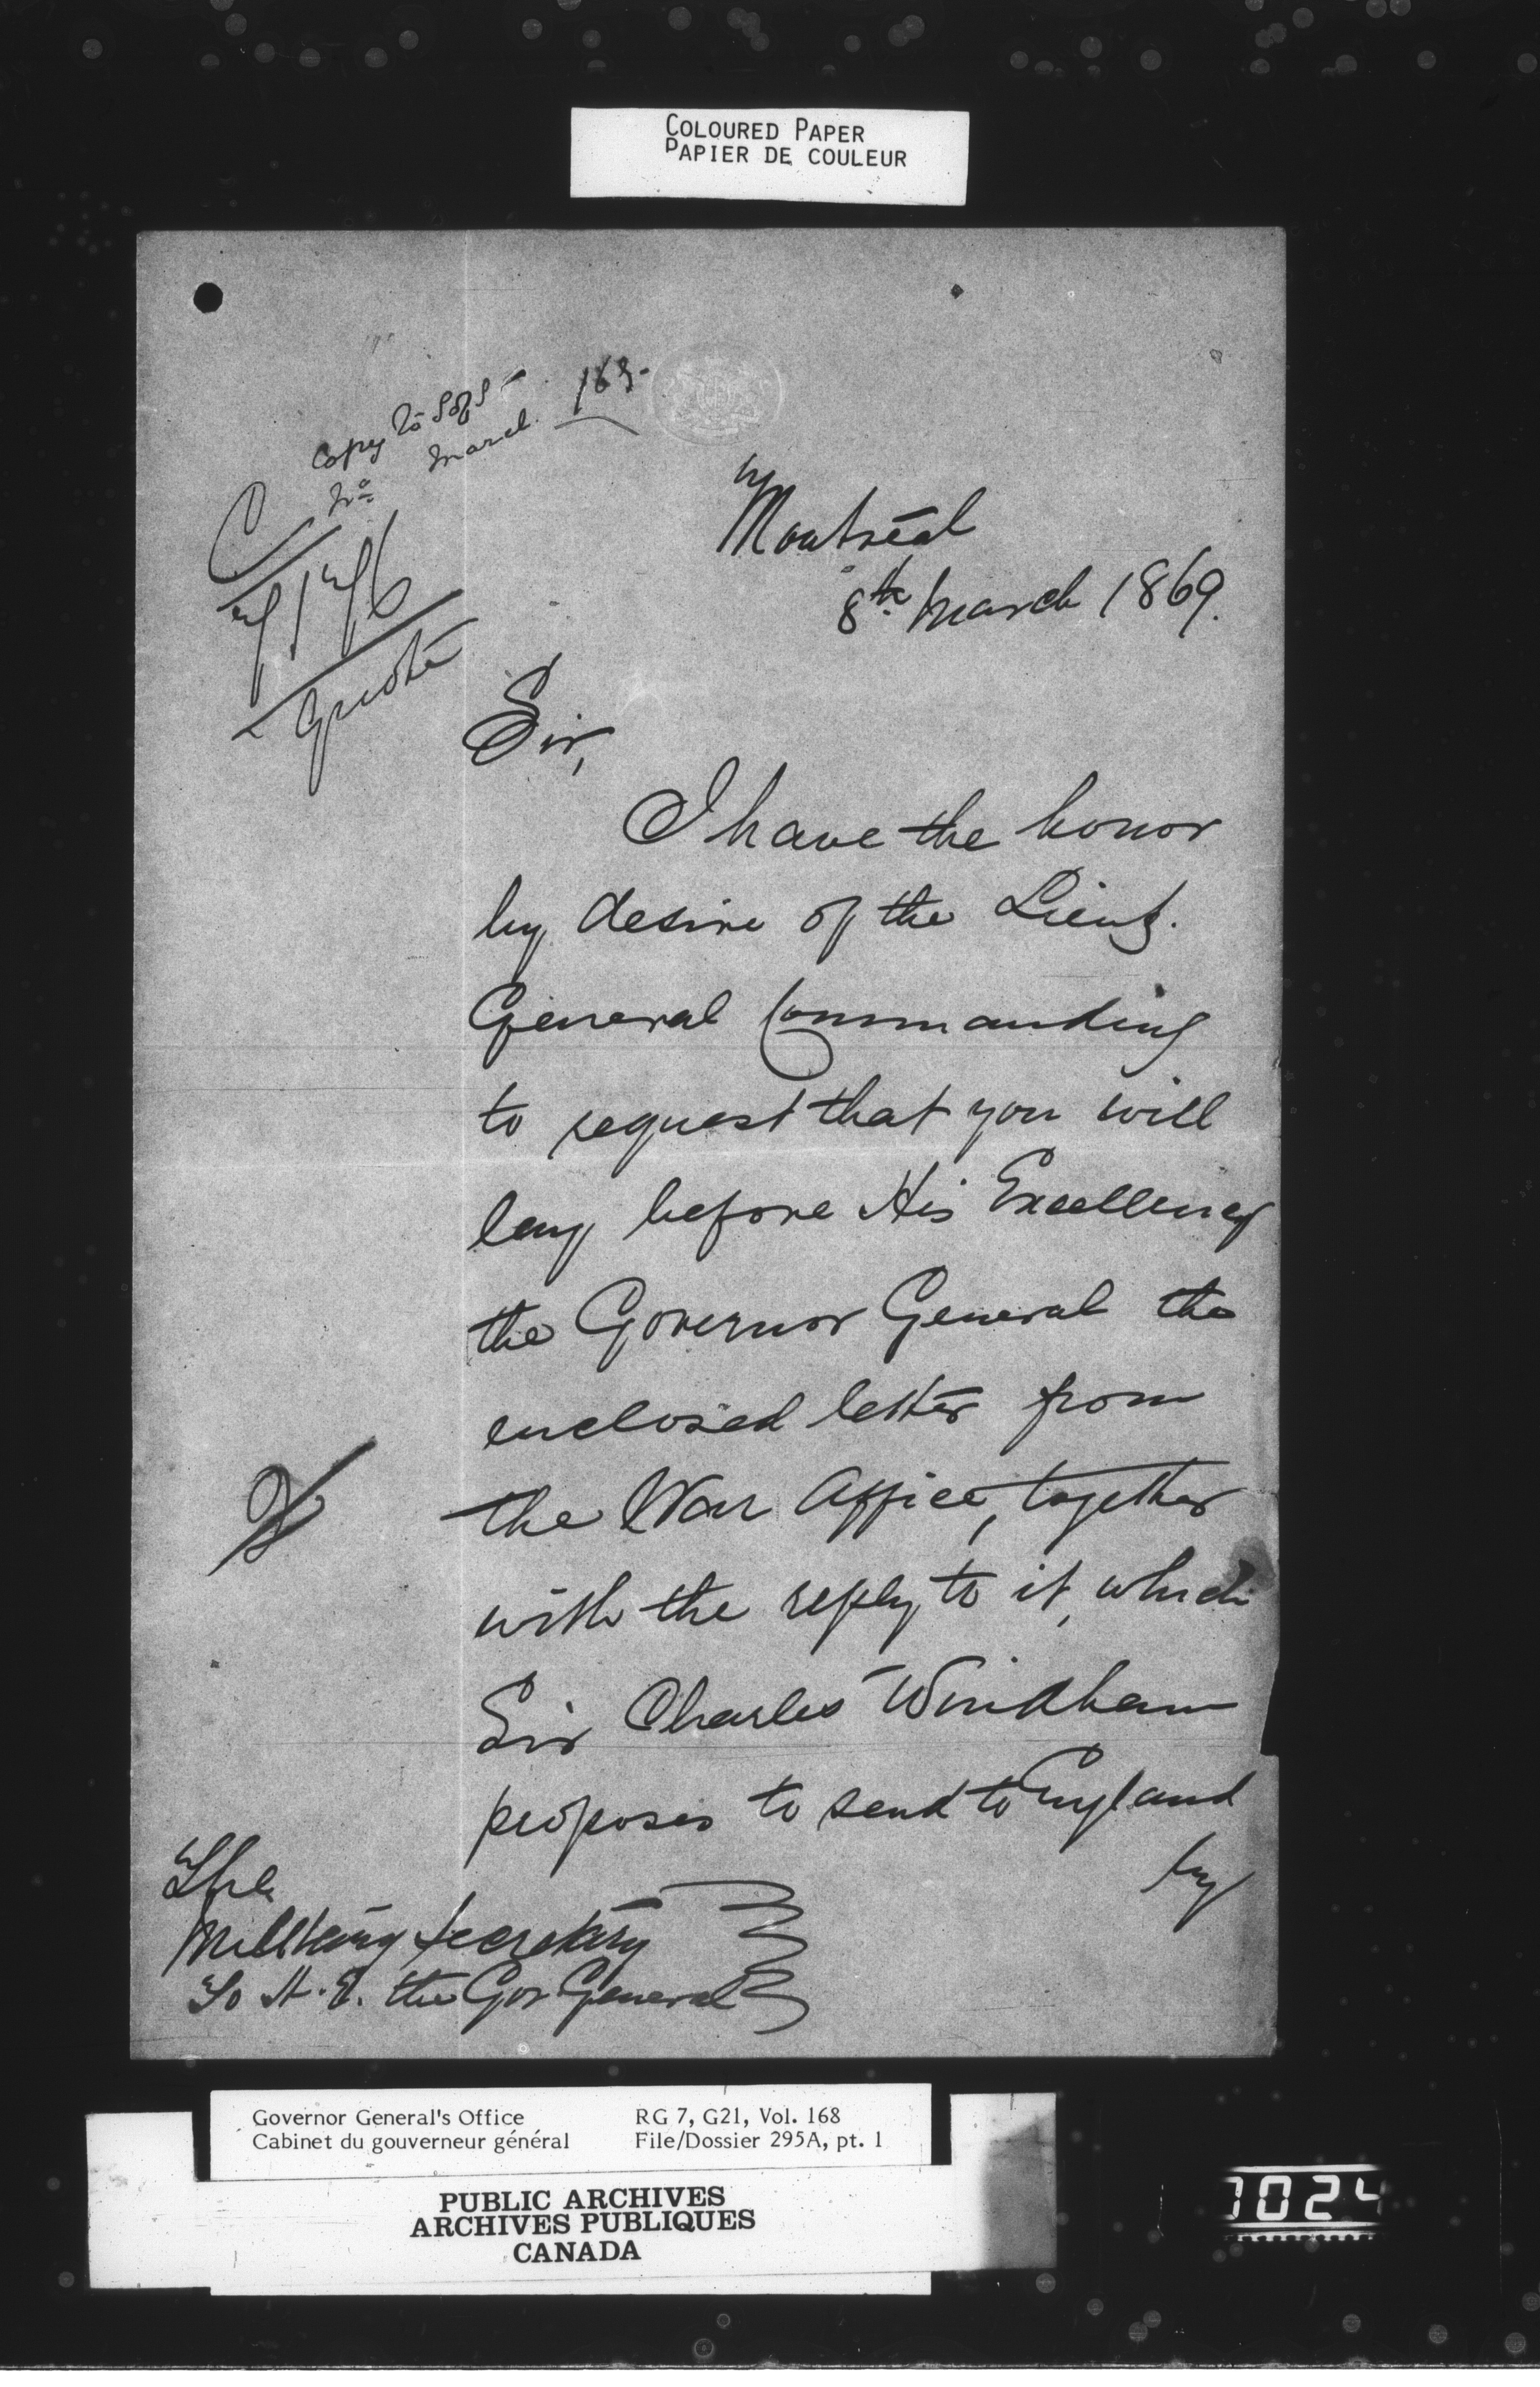 COLOURED PAPER
PAPIER DE COULEUR
Copy to S of S
No March 163-
Quote
Montreal
8th March 1869.
Sir,
I have the honor
by desire of the Lieut.
General Commanding
to request that you will
lay before His Excellency
the Governor General the
enclosed letter from
the War Office, together
with the reply to it, which
Sir Charles Windham
proposes to send to England
by
The
Military Secretary
To H. E. the Gov General
Governor General's Office
Cabinet du gouverneur général
RG 7, G21, Vol. 168
File/Dossier 295A, pt. 1
PUBLIC ARCHIVES
ARCHIVES PUBLIQUES
CANADA
1024